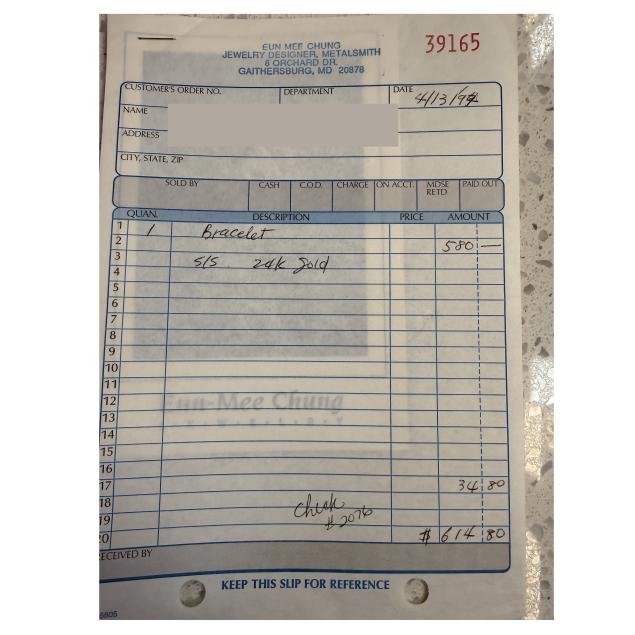 39165
EUN MEE CHUNG
JEWELRY DESIGNER, METALSMITH
8 ORCHARD DR.
GAITHERSBURG, MD 20878
CUSTOMER'S ORDER NO. DEPARTMENT DATE 4/13/94
NAME
ADDRESS
CITY, STATE, ZIP
SOLD BY CASH C.O.D. CHARGE ON ACCT. MDSE RETD PAID OUT
QUAN. DESCRIPTION PRICE AMOUNT
1 1 Bracelet
2 580 —
3 S/S 24k gold
4
5
6
7
8
9
10
11
12 Eun-Mee Chung
13 J E W E L R Y
14
15
16
17 34 80
18 Check
19 # 2076
20 $ 614 80
RECEIVED BY
KEEP THIS SLIP FOR REFERENCE
5805